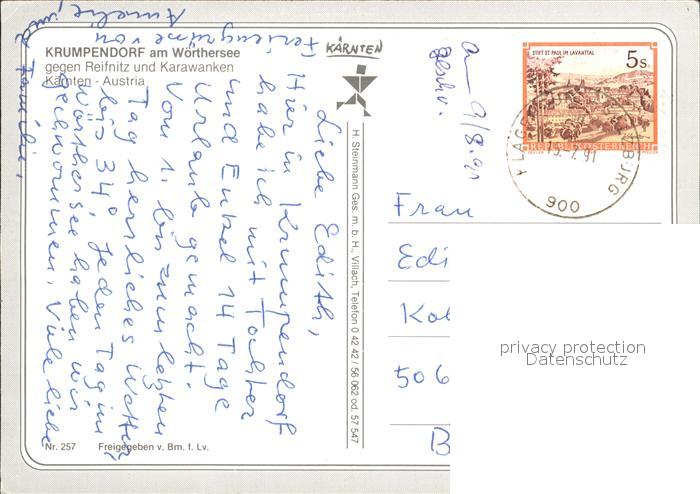 KRUMPENDORF am Wörthersee
gegen Reifnitz und Karawanken
Kärnten - Austria
KÄRNTEN
Liebe Edith,
Hier in Krumpendorf
habe ich mit Tochter
und Enkel 14 Tage
Urlaub gemacht.
Vom 1. bis zum letzten
Tag herrliches Wetter
bis 34° jeden Tag im
Wörthersee haben wir
geschwommen. Viele liebe
Feriengrüße von
Amelie und
Familie.
Nr. 257 Freigegeben v. Bm. f. Lv.
H. Steinmann Ges. m. b. H., Villach, Telefon 0 42 42 / 56 062 od. 57 547
am 9/8.91
STIFT ST. PAUL IM LAVANTTAL
5 S
REPUBLIK ÖSTERREICH
7.91
900
Frau
Edi
Kol
506
B
privacy protection
Datenschutz